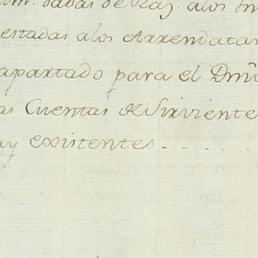 dadas de Raz.. a los
estadas a los Arrendata
apartado para el Dm
as Cuentas de Sirviente
y existentes . . . . .